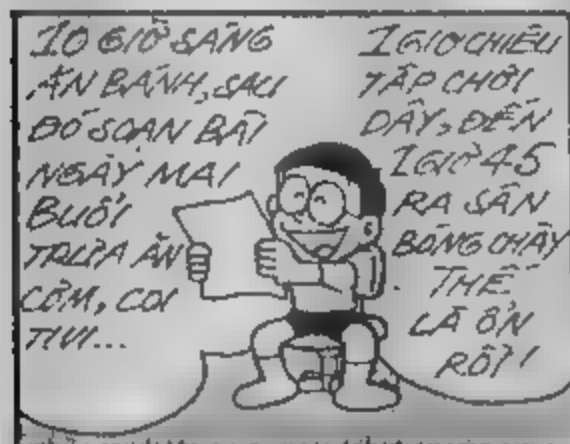 10 GIỜ SÁNG
ĂN BÁNH, SAU
ĐÓ SOẠN BÀI
NGÀY MAI
BUỔI
TRƯA ĂN
CƠM, COI
TIVI...
1 GIỜ CHIỀU
TẬP CHƠI
DÂY, ĐẾN
1 GIỜ 45
RA SÂN
BÓNG CHÀY
THẾ
LÀ ỔN
RỒI!